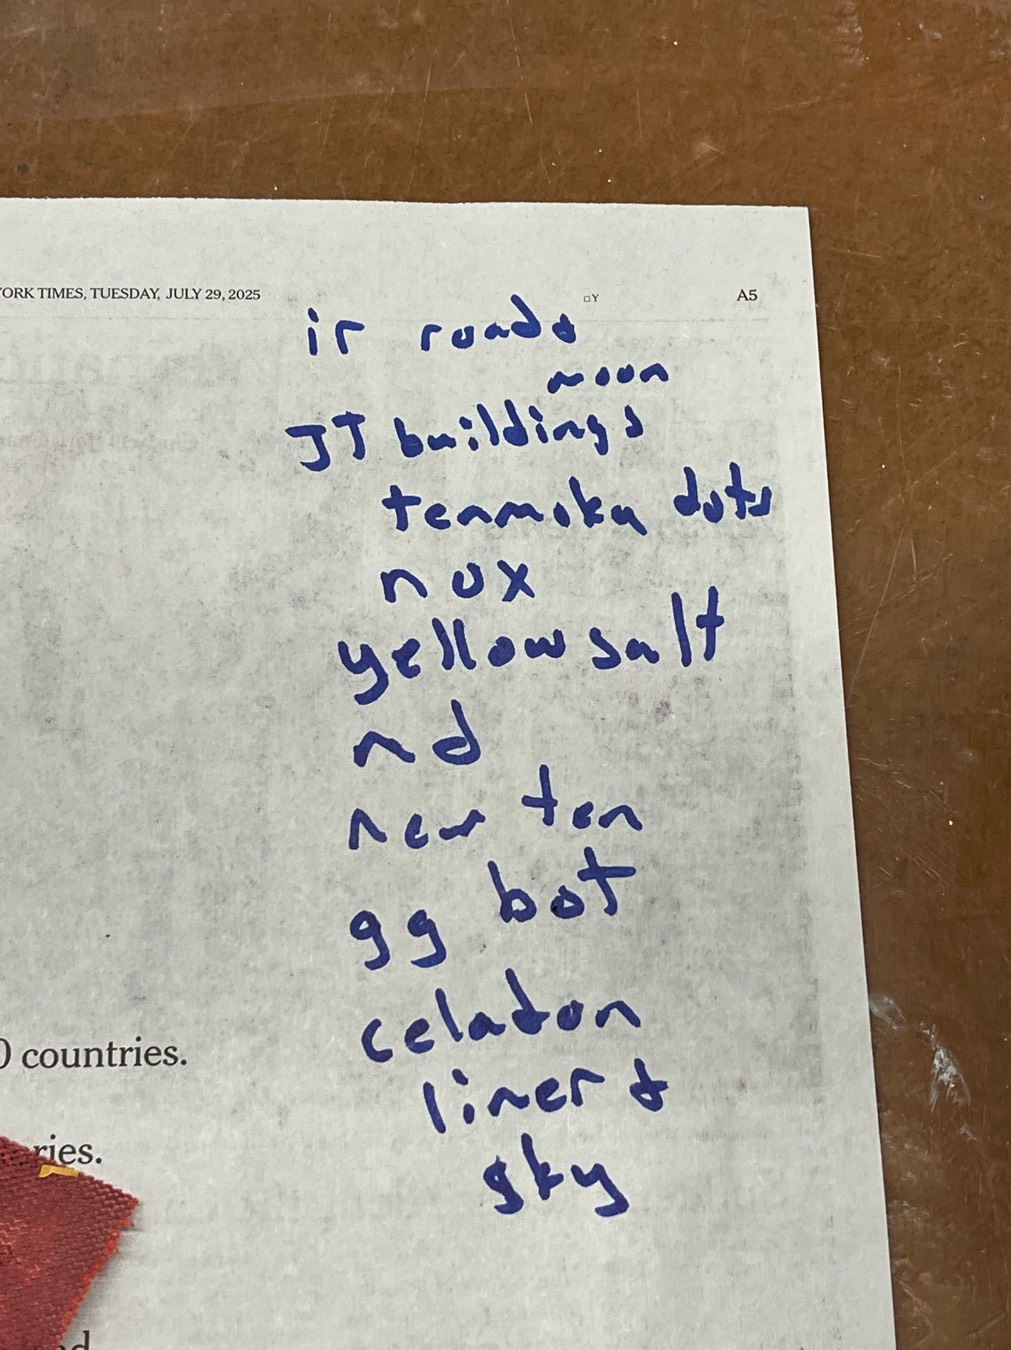 YORK TIMES, TUESDAY, JULY 29, 2025
Y
A5
ir roads
moon
JT buildings
tenmoku dots
nux
yellow salt
nd
new ten
gg bot
celadon
liner &
sky
0 countries.
ries.